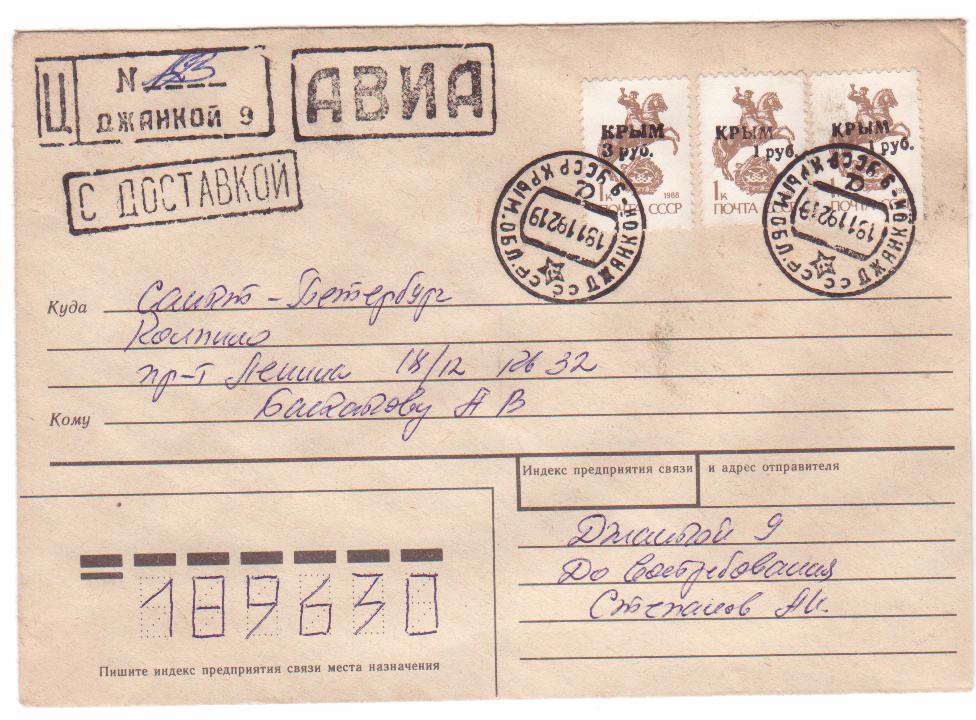 Ц
N 123
ДЖАНКОЙ 9
АВИА
С ДОСТАВКОЙ
КРЫМ
3 руб.
1к
1988
ПОЧТА СССР
КРЫМ
1 руб.
1к
ПОЧТА
КРЫМ
1 руб.
1к
ПОЧТА СС
СССР ДЖАНКОЙ-9 УССР КРЫМ.ОБЛ.
19119219
СССР ДЖАНКОЙ-9 УССР КРЫМ.ОБЛ.
19119219
Куда Санкт-Петербург
Колпино
пр-т Ленина 18/12 кв 32
Кому А В
Индекс предприятия связи и адрес отправителя
Джанкой 9
До востребования
Степанов
189630
Пишите индекс предприятия связи места назначения